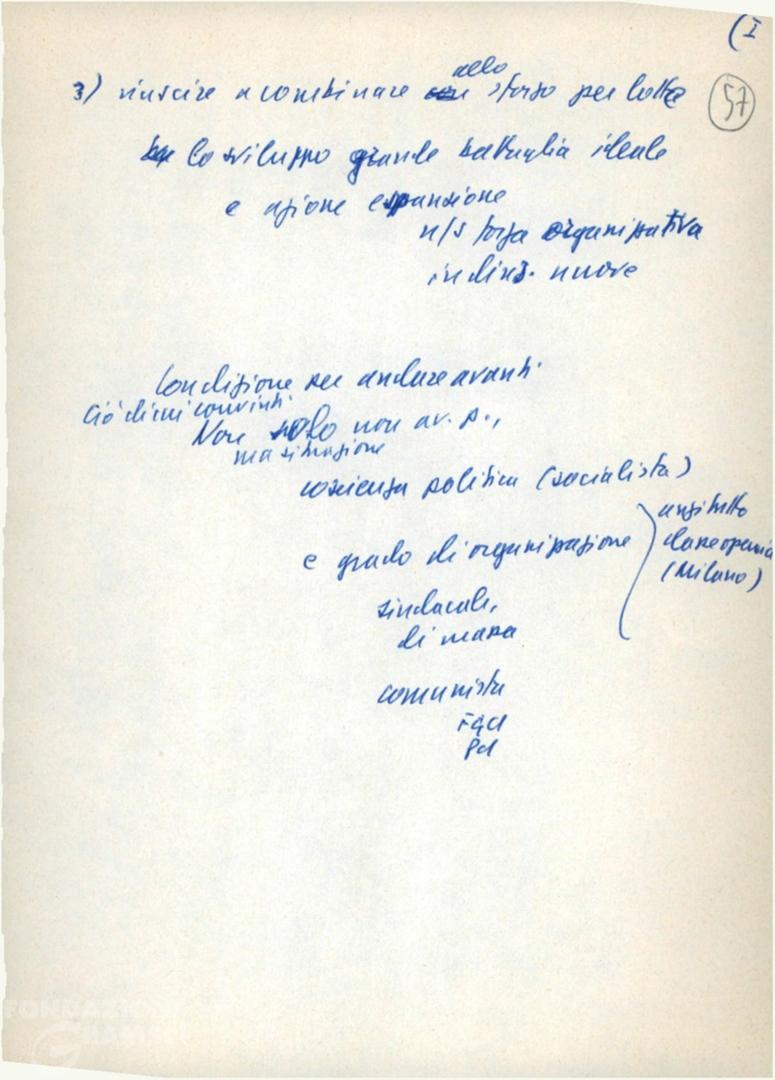 (I
57
allo
3) riuscire a combinare sforzo per lotta
lo sviluppo grande battaglia ideale
e azione espansione
n/s forza organizzativa
in direz. nuove
Condizione per andare avanti
Ciò di cui convinti
Non solo non av. p.,
ma situazione
coscienza politica (socialista)
anzitutto
e grado di organizzazione
classe operaia
(Milano)
sindacale,
di massa
comunista
FGCI
PCI
FONDAZIONE
GRAMSCI